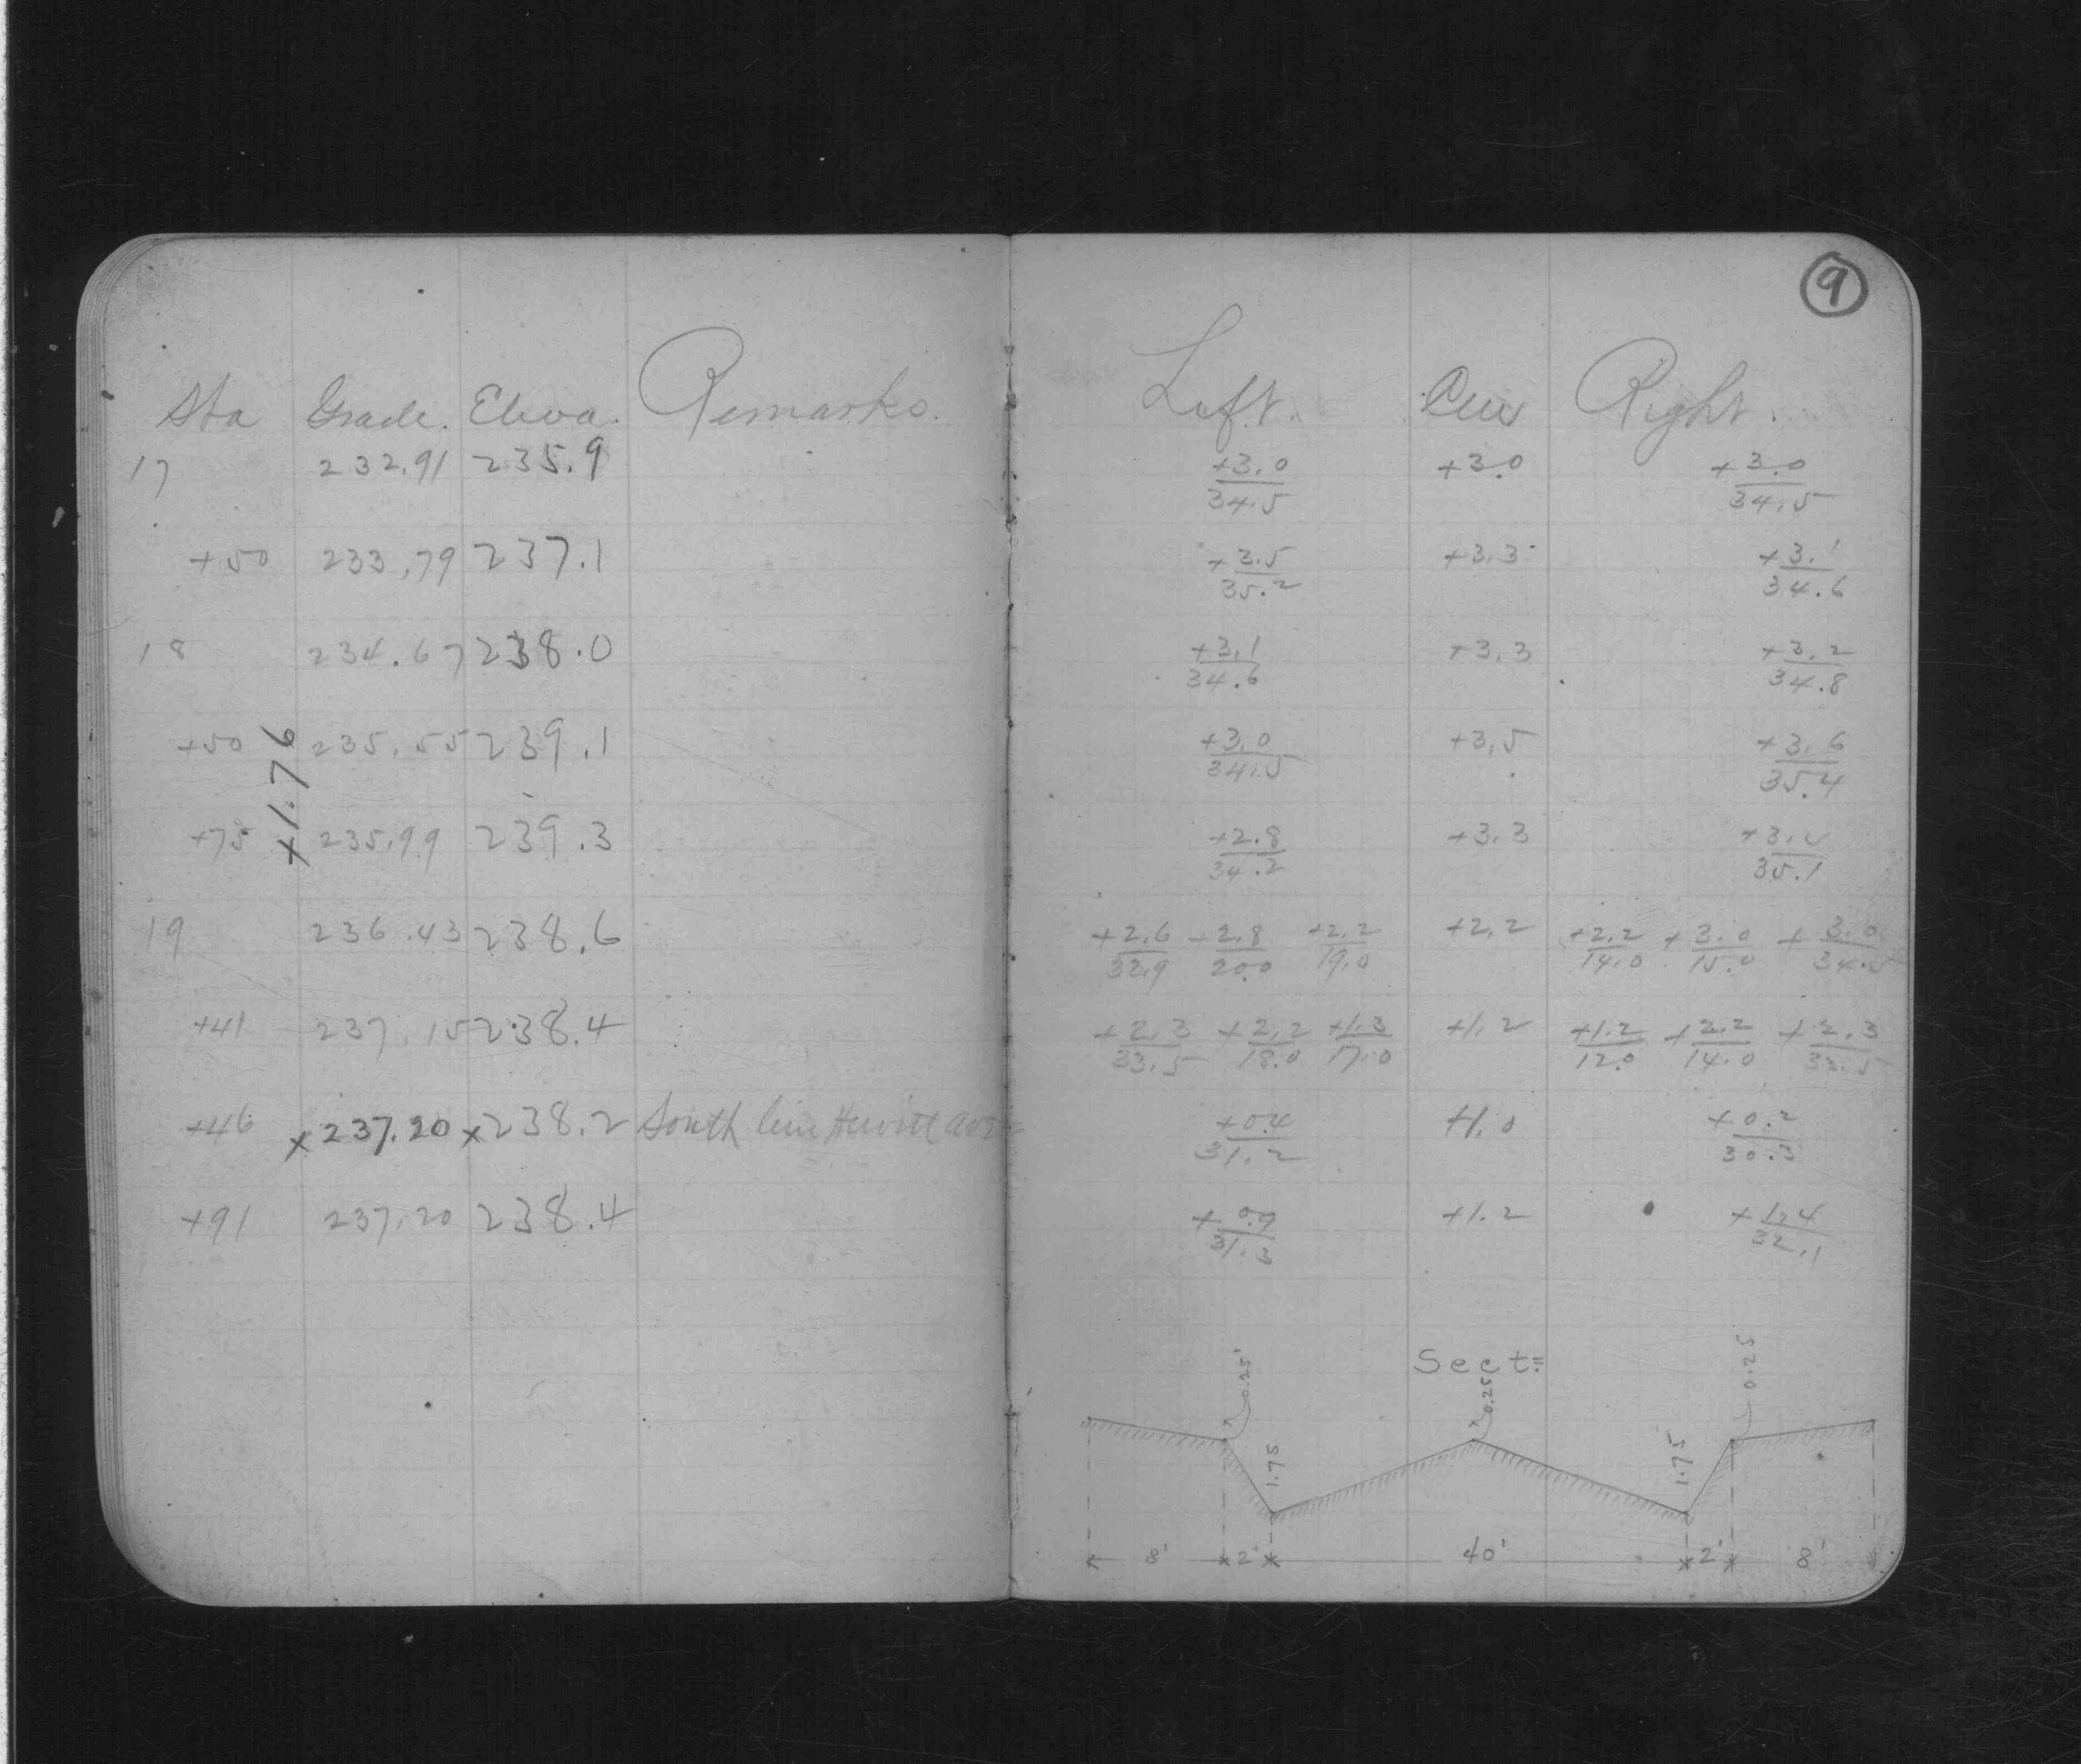 9
Sta Grade. Eleva. Remarks. Left. Cen Right.
17 232.91 235.9 +3.0/34.5 +3.0 +3.0/34.5
+50 233.79 237.1 +3.5/35.2 +3.3 +3.1/34.6
18 234.67 238.0 +3.1/34.6 +3.3 +3.2/34.8
+50 235.55 239.1 +3.0/34.5 +3.5 +3.6/35.4
+1.76
+75 235.99 239.3 +2.8/34.2 +3.3 35.1
19 236.43 238.6 +2.6/33.9 +2.8/20.0 +2.2/19.0 +2.2 +2.2/14.0 +3.0/15.0 +3.0/34.5
+41 237.15 238.4 +2.3/33.5 +2.2/18.0 +1.3/17.0 +1.2 +1.2/12.0 +2.2/14.0 +2.3/33.5
+46 x237.20 x238.2 South line Hewitt ave +0.4/31.2 +1.0 +0.2/30.3
+91 237.20 238.4 +0.9/31.3 +1.2 +1.4/32.1
Sect=
0.25' 0.25 0.25
1.75 1.75
8' 2' 40' 2' 8'